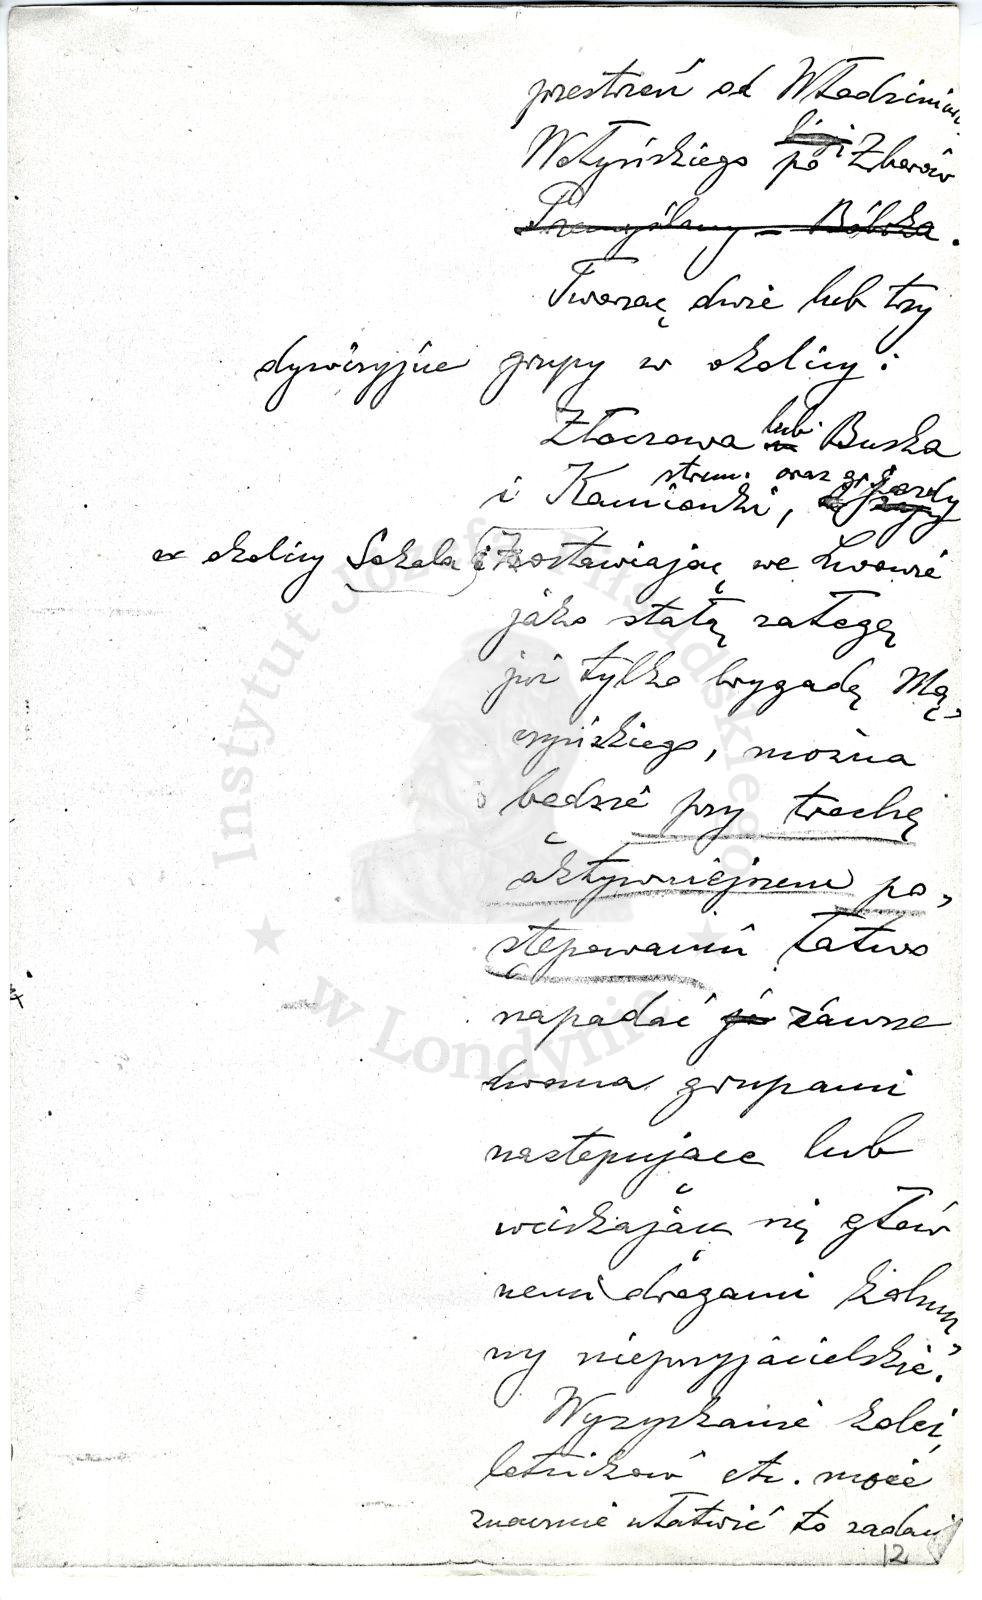 przestrzeń od Włodzimierz
Wołyńskiego po Zborów
Przemyślany – Bóbrka.
Tworząc dwie lub trzy
dywizyjne grupy w okolicy:
Złoczowa lub Buska
i Kamionki, strum. oraz gr. jazdy
w okolicy Sokala i Zostawiając we Lwowie
jako stałą załogę
już tylko brygadę Mą-
czyńskiego, można
będzie przy trochę
aktywniejszem po-
stępowaniu łatwo
napadać je zawsze
dwoma grupami
następujące lub
wciskające się głów
nemi drogami kolum-
ny nieprzyjacielskie.
Wyzyskanie kolei,
lotników etc. może
znacznie ułatwić to zadani
12
Instytut Józefa Piłsudskiego
w Londynie